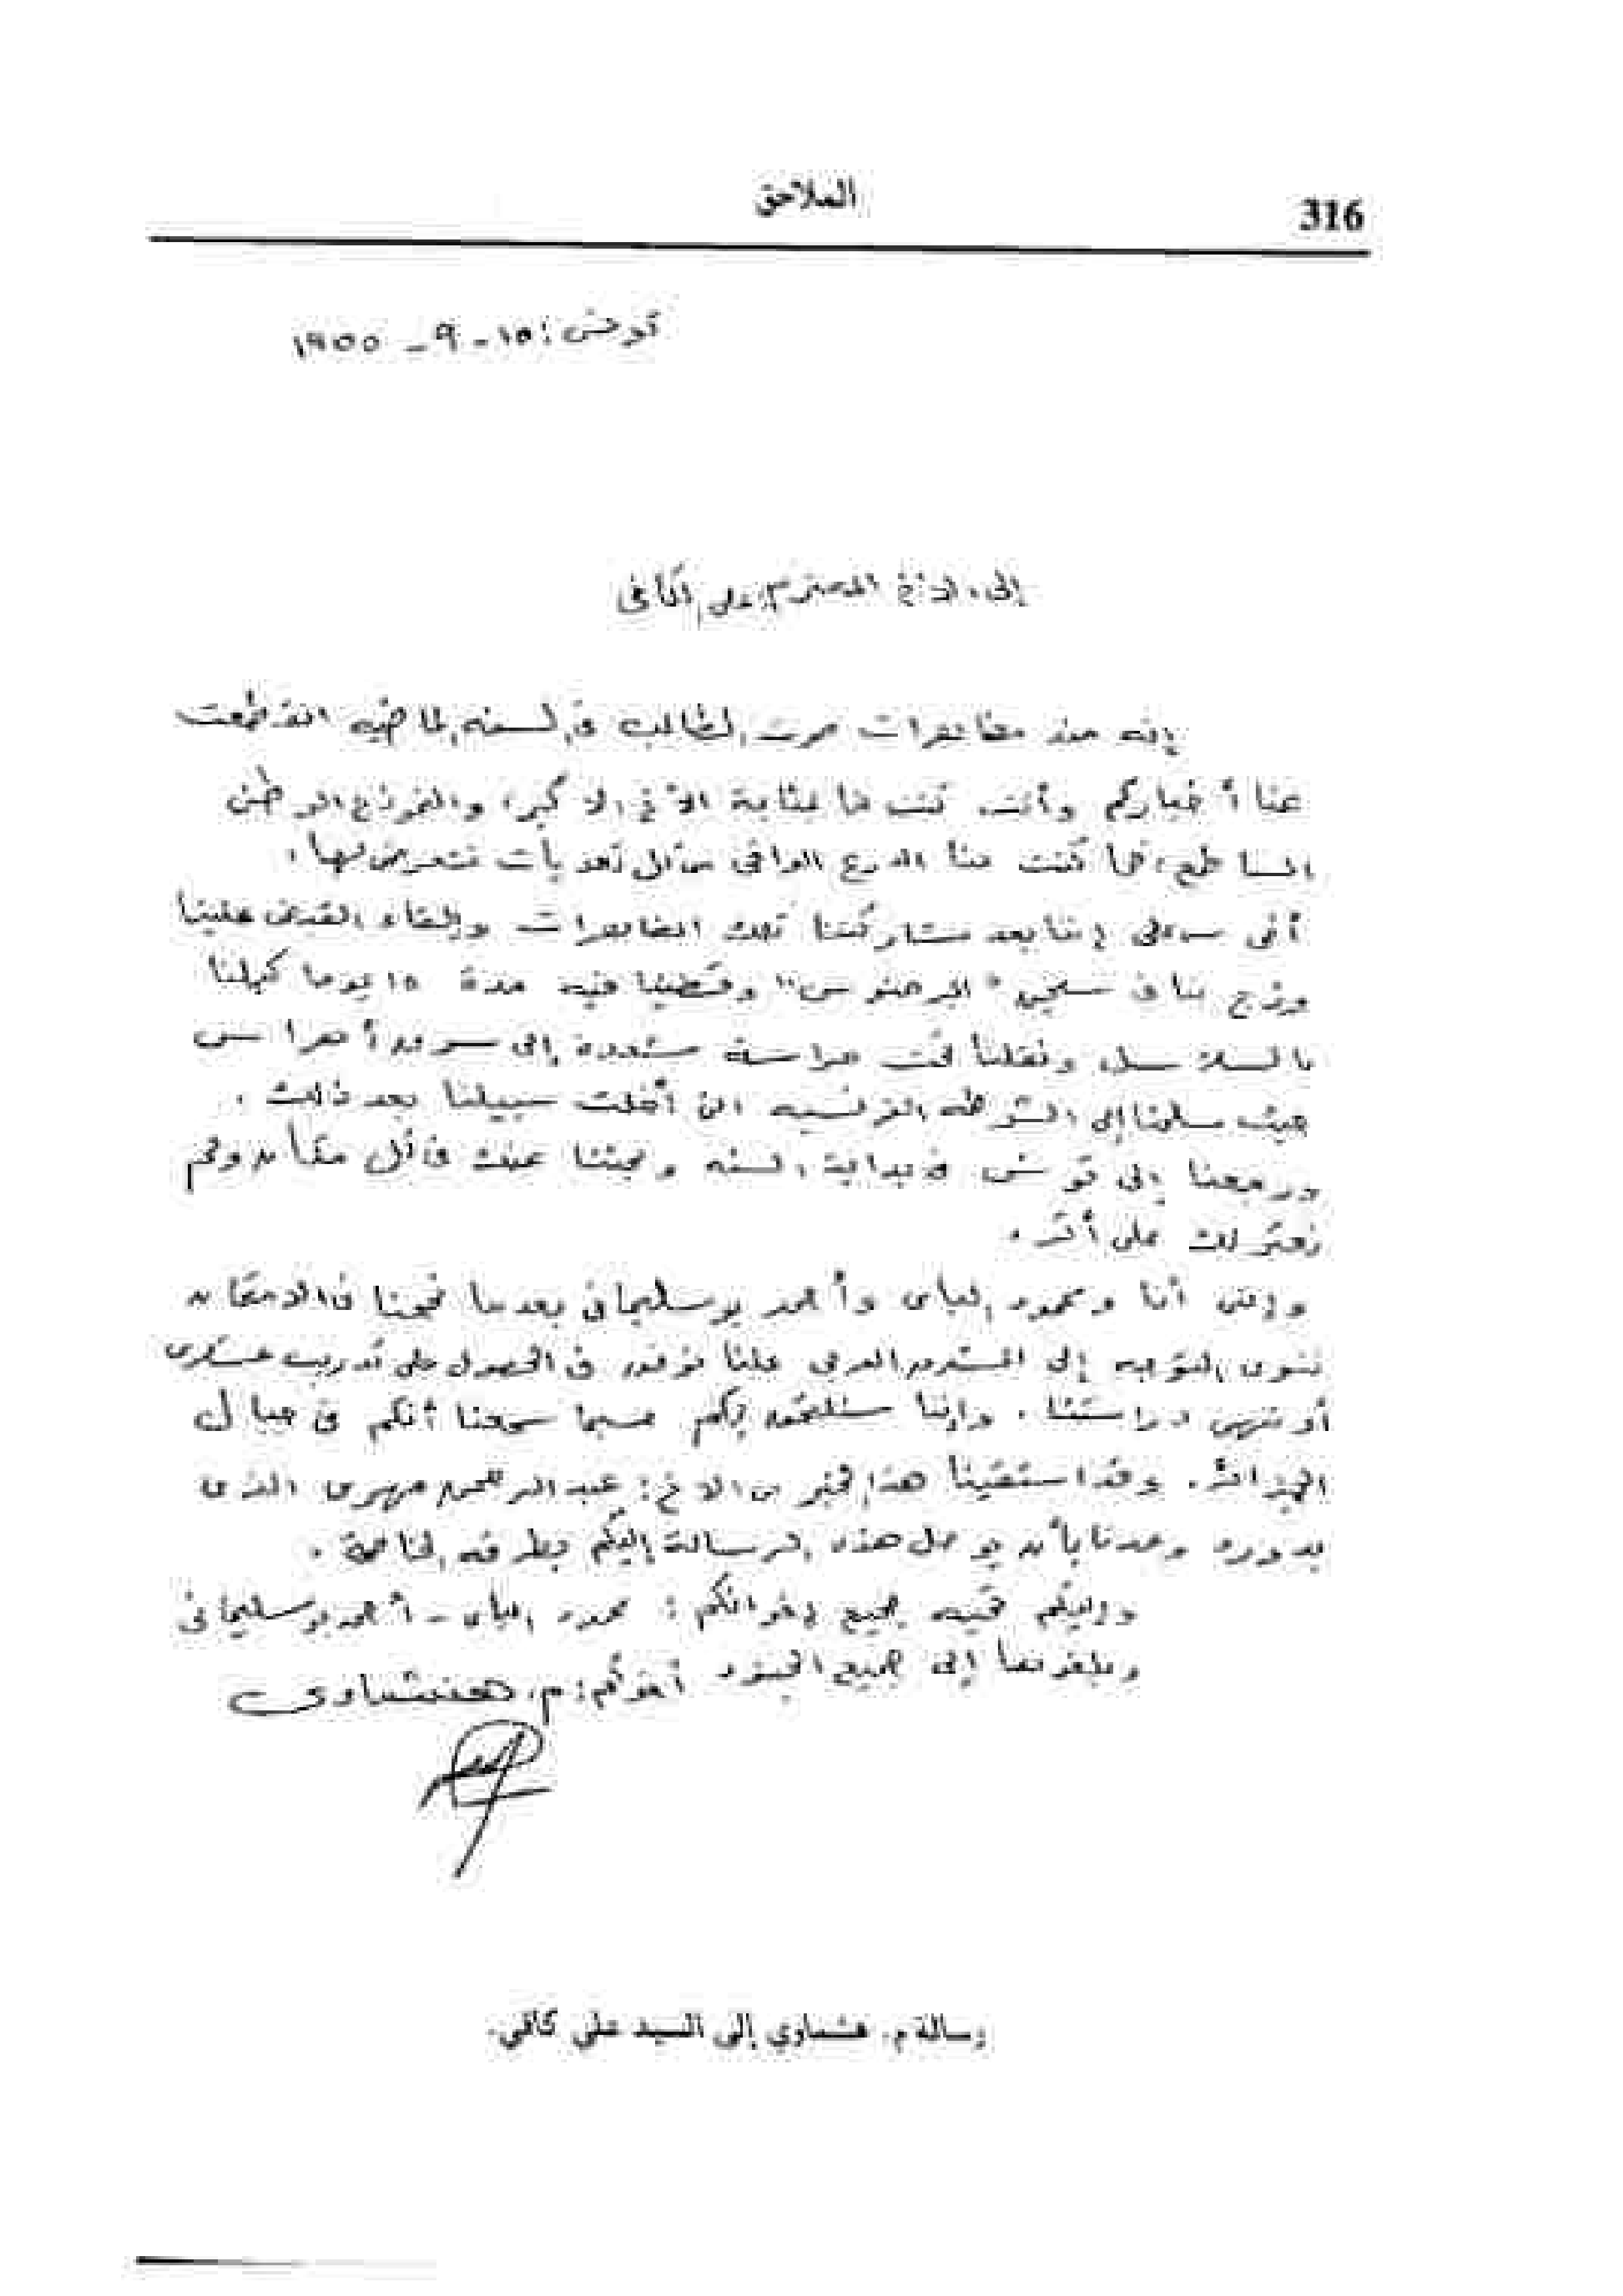 316
الملاحق
تونس: ١٥ - ٩ - ١٩٥٥
إلى الأخ المحترم: علي الكافي
إنه منذ مظاهرات صوت الطالب في السنة الماضية انقطعت
عنا أخباركم وأنت كنت لنا بمثابة الأخ الأكبر، والنموذج الوطني
الساطع، كما كنت لنا الدرع الواقي من كل تعديات نتعرض لها.
أخي علي إننا بعد مشاركتنا تلك المظاهرات وإلقاء القبض علينا
وزج بنا في سجن وقضينا فيه مدة ١٥ يوما كبلنا
بالسلاسل ونقلنا تحت حراسة مشددة إلى سوق أهراس
حيث سلمنا إلى الشرطة الفرنسية التي أخلت سبيلنا بعد ذلك.
ورجعنا إلى تونس في بداية السنة وبحثنا عنك في كل مكان ولم
نعثر لك على أثر.
وإنني أنا ومحمود الياس وأحمد بوسليماني بعدما نجحنا في الامتحان
ننوي التوجه إلى المشرق العربي علنا نوفق في الحصول على تدريب عسكري
أو ننهي دراستنا. وإننا سنلتحق بكم حسبما سمعنا أنكم في جبال
الجزائر. وقد استقينا هذا الخبر من الأخ: عبد الرحمن مهري الذي
بدوره وعدنا بأن يوصل هذه الرسالة إليكم بطرقه الخاصة.
وإليكم تحية جميع إخوانكم: محمود الياس - أحمد بوسليماني
وبلغوها إلى جميع الجنود أخوكم: م. هشماوي
رسالة م. هشماوي إلى السيد علي كافي.